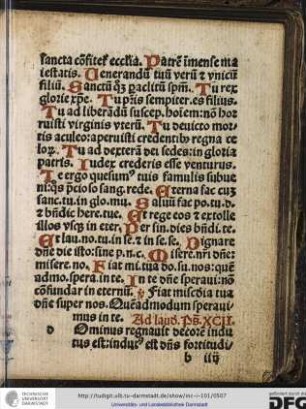 sancta cōfitet᷑ eccĺia. Patrē īmense ma
iestatis. Uenerandū tuū verū ⁊ vnicū
filiū. Sanctū qꝫ paclitū spm̄. Tu rex
glorie xp̄e. Tu pr̄is sempiter. es filius.
Tu ad liberādū suscep. hoīem: nō hor
ruisti virginis vterū. Tu deuicto mor
tis aculeo: aperuisti credentib᷒ regna ce
lorꝝ. Tu ad dexterā dei sedes: in gloria
patris. Iudex crederis esse venturus.
Te ergo quesum᷒ tuis famulis subue
ni: q̄s p̄cioso sang. rede. Eterna fac cuꝫ
sanc. tu. in glo. mu. Saluū fac po. tu. d.
⁊ bn̄dic here. tue. Et rege eos ⁊ extolle
illos vsqꝫ in eter. Per sin. dies bn̄di. te.
Et lau. no. tu. in se. ⁊ in se. se. Dignare
dn̄e die isto: sine p. n. c. Misere. nr̄i dn̄e:
misere. no. Fiat mi. tua do. su. nos: quē
admo. spera. in te. In te dn̄e speraui: nō
cōfundar in eternū. Fiat misc̄dia tua
dn̄e super nos. Quēadmodum speraui
mus in te. Ad laud. Ps. XCII.
d Ominus regnauit decorē indu
tus est: indut᷒ est dn̄s fortitudi
b iiij
TECHNISCHE
UNIVERSITÄT
DARMSTADT
http://tudigit.ulb.tu-darmstadt.de/show/inc-i-101/0507
Universitäts- und Landesbibliothek Darmstadt